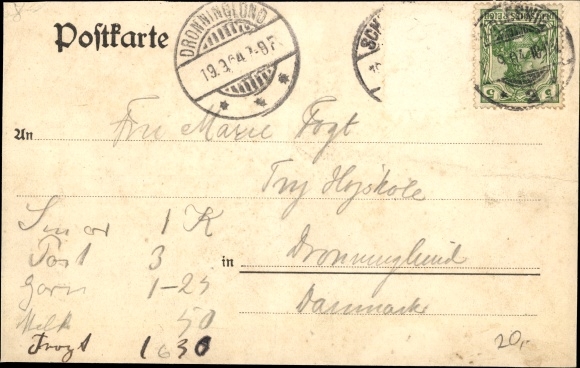 Postkarte
DRONNINGLUND
19.9.04.7-9F
SCH
DEUTSCHES REICH
5 5
An Fru Marie Fogt
Try Højskole
in Dronninglund
Danmark
Smør 1 K
Post 3
Garn 1-25
Melk 50
Frogt 1 630
20,-